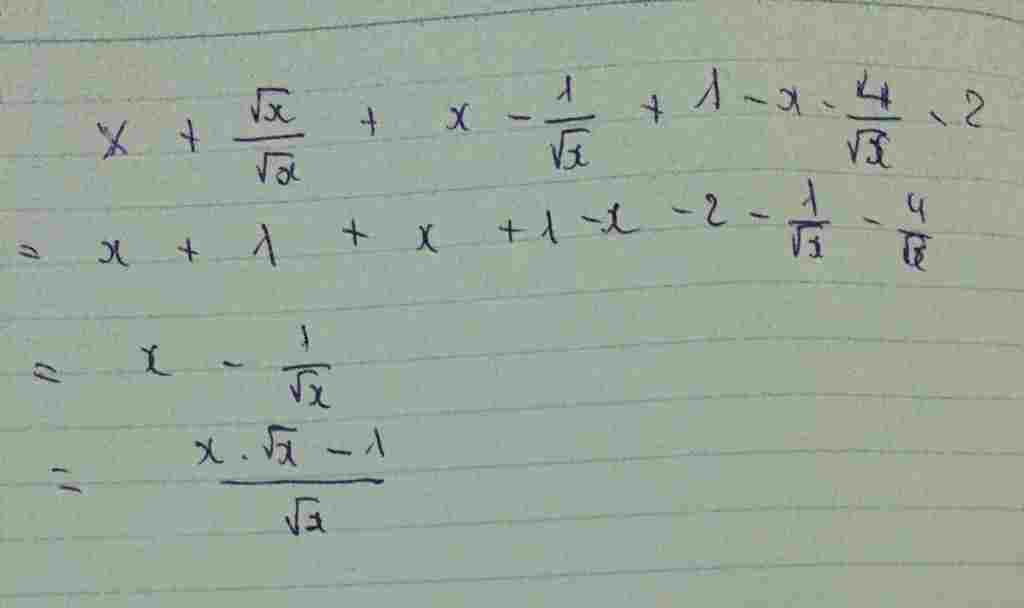 x + √x/√x + x - 1/√x + 1 - x - 4/√x - 2
= x + 1 + x + 1 - x - 2 - 1/√x - 4/√x
= x - 1/√x
= (x . √x - 1)/√x